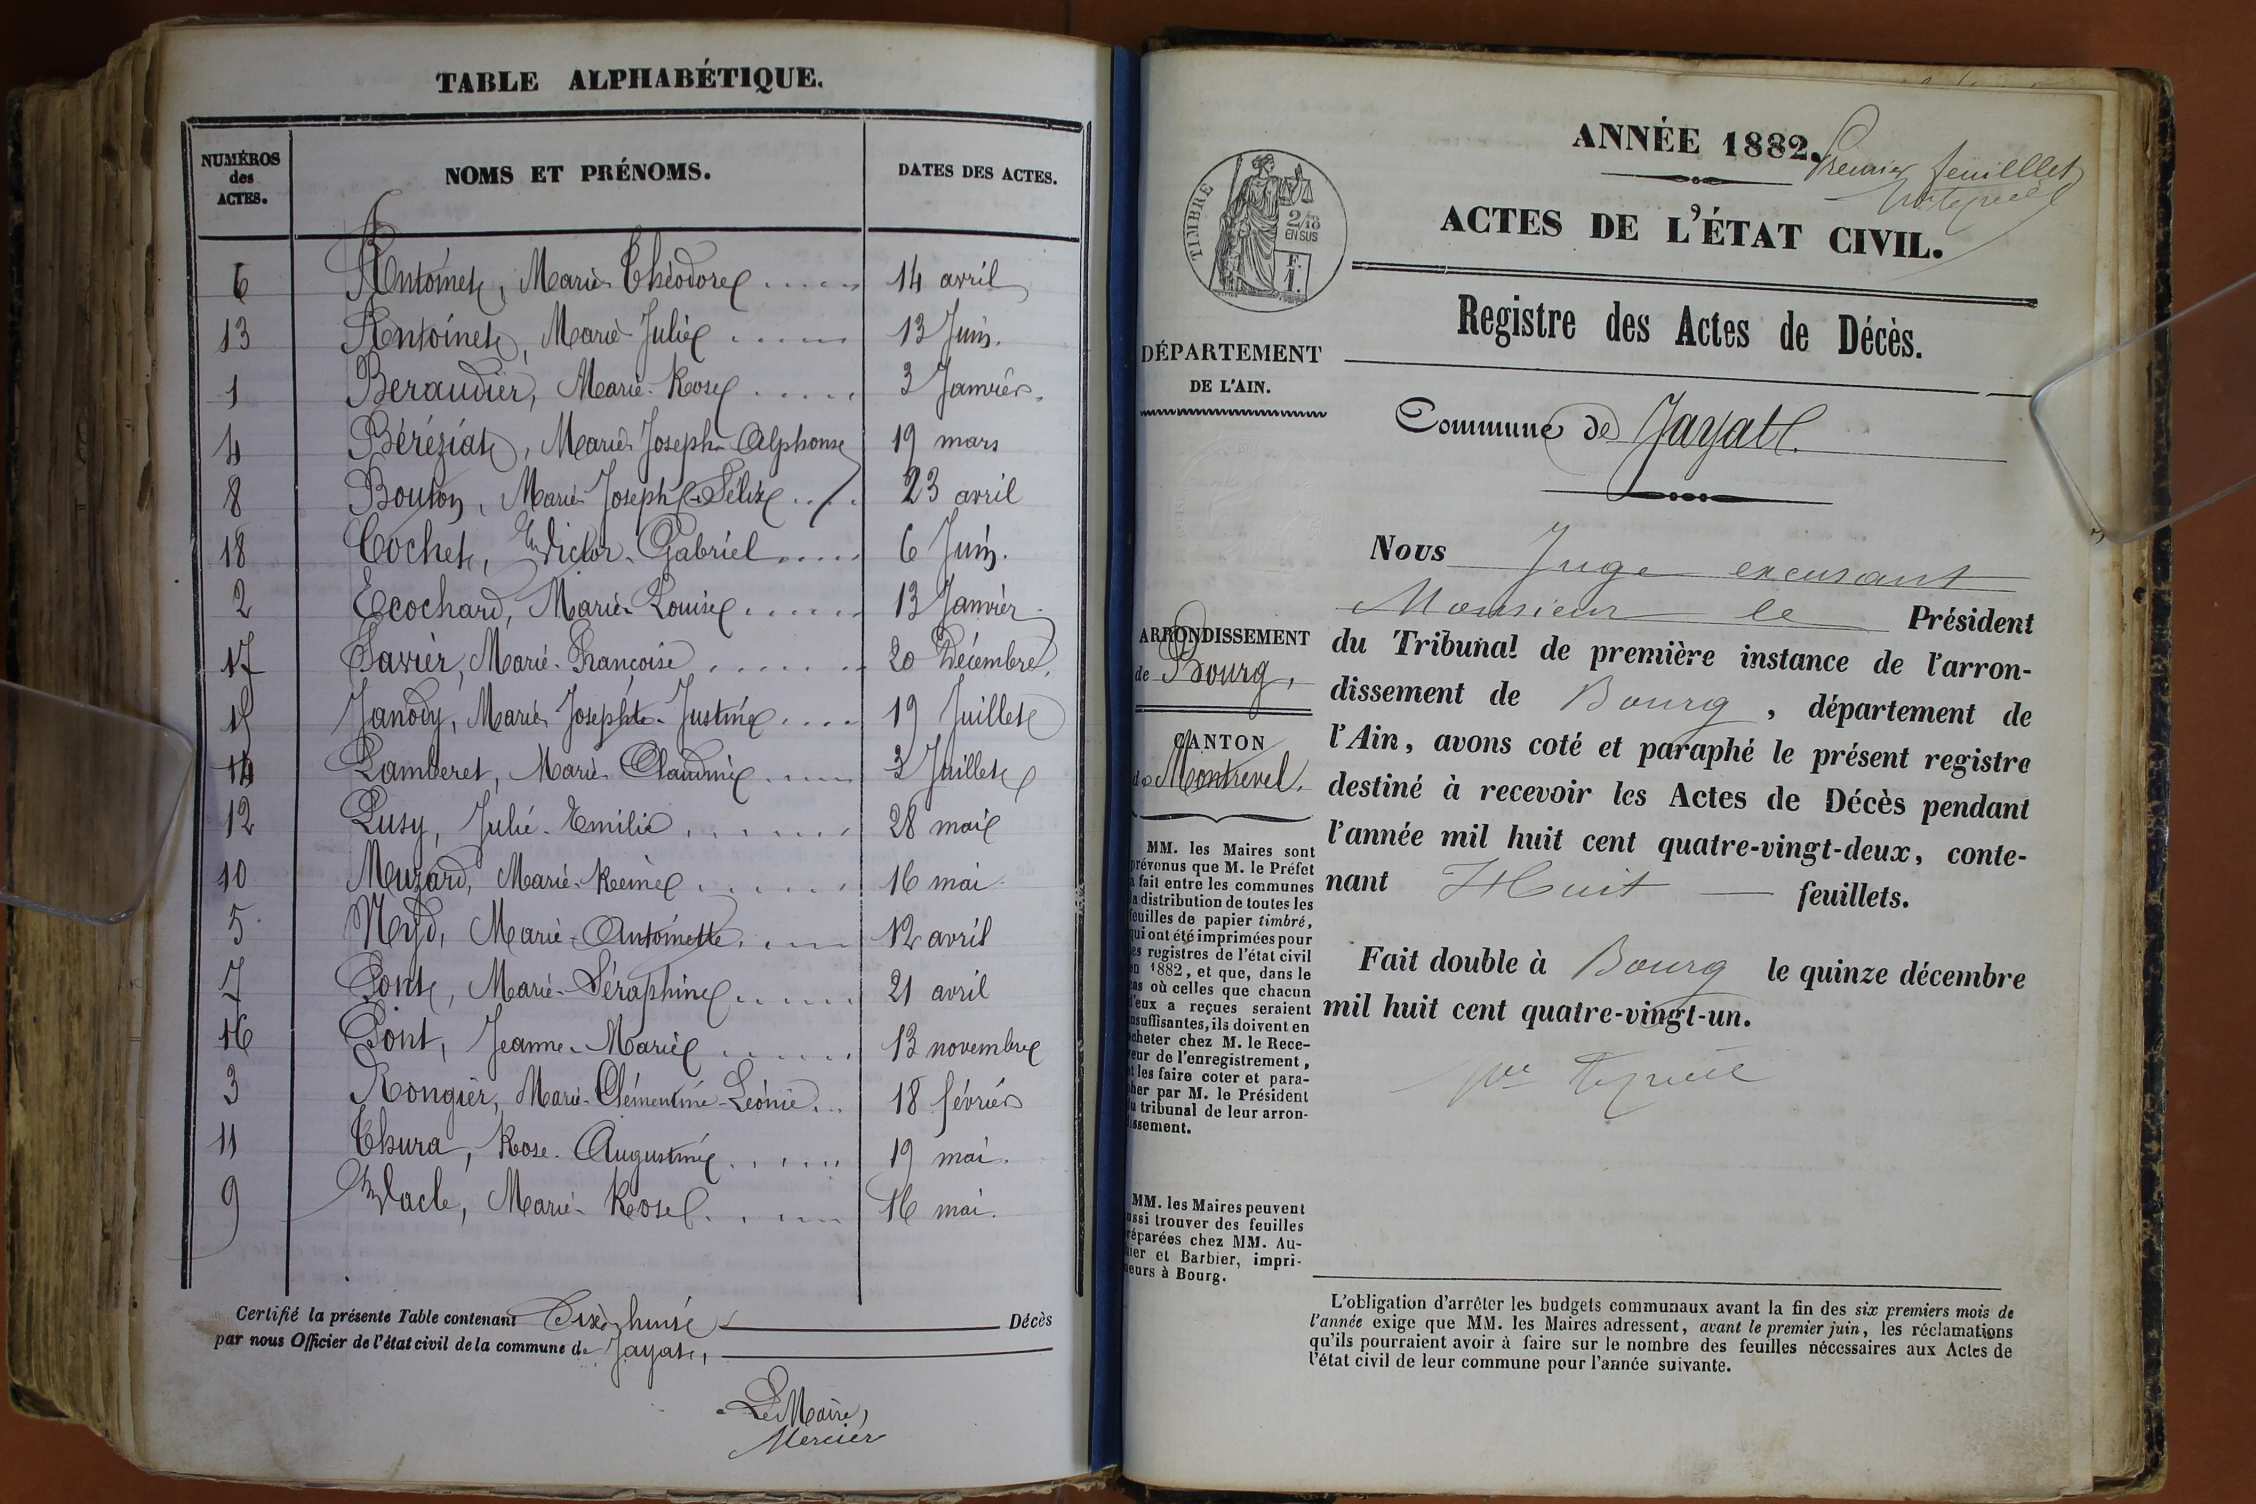 TABLE ALPHABÉTIQUE.
NUMÉROS des ACTES. NOMS ET PRÉNOMS. DATES DES ACTES.
6 Antoinet, Marie-Théodore 14 avril
13 Antoinet, Marie-Julie 13 Juin.
1 Beraudier, Marie-Rose 3 Janvier.
4 Béréziat, Marie-Joseph-Alphonse 19 mars
8 Bouton, Marie-Joseph-Félix 23 avril
18 Cochet, Victor-Gabriel 6 Juin.
2 Ecochard, Marie-Louise 13 Janvier
17 Favier, Marie-Françoise 20 Décembre.
15 Janody, Marie-Josephte-Justine 19 Juillet
14 Lamberet, Marie-Claudine 3 Juillet
12 Lusy, Julie-Emilie 28 mai
10 Muzard, Marie-Reine 16 mai
5 Neyd, Marie-Antoinette 12 avril
7 Pont, Marie-Séraphine 21 avril
16 Pont, Jeanne-Marie 13 novembre
3 Rongier, Marie-Clémentine-Léonie 18 février
11 Thura, Rose-Augustine 19 mai.
9 Vacle, Marie-Rose 16 mai.
Certifié la présente Table contenant Décès
par nous Officier de l'état civil de la commune de Jayat,
Le Maire,
Mercier
ANNÉE 1882.
Premier feuilllet
ACTES DE L'ÉTAT CIVIL.
TIMBRE
2/10 EN SUS
F. 1.
Registre des Actes de Décès.
DÉPARTEMENT
DE L'AIN.
Commune de Jayat.
ARRONDISSEMENT
de Bourg,
CANTON
de Montrevel.
Nous Juge excusant
Monsieur le Président
du Tribunal de première instance de l'arron-
dissement de Bourg, département de
l'Ain, avons coté et paraphé le présent registre
destiné à recevoir les Actes de Décès pendant
l'année mil huit cent quatre-vingt-deux, conte-
nant Huit feuillets.
Fait double à Bourg le quinze décembre
mil huit cent quatre-vingt-un.
MM. les Maires sont
prévenus que M. le Préfet
a fait entre les communes
la distribution de toutes les
feuilles de papier timbré,
qui ont été imprimées pour
les registres de l'état civil
en 1882, et que, dans le
cas où celles que chacun
d'eux a reçues seraient
insuffisantes, ils doivent en
acheter chez M. le Rece-
veur de l'enregistrement,
et les faire coter et para-
pher par M. le Président
du tribunal de leur arron-
dissement.
MM. les Maires peuvent
aussi trouver des feuilles
préparées chez MM. Au-
thier et Barbier, impri-
meurs à Bourg.
L'obligation d'arrêter les budgets communaux avant la fin des six premiers mois de
l'année exige que MM. les Maires adressent, avant le premier juin, les réclamations
qu'ils pourraient avoir à faire sur le nombre des feuilles nécessaires aux Actes de
l'état civil de leur commune pour l'année suivante.